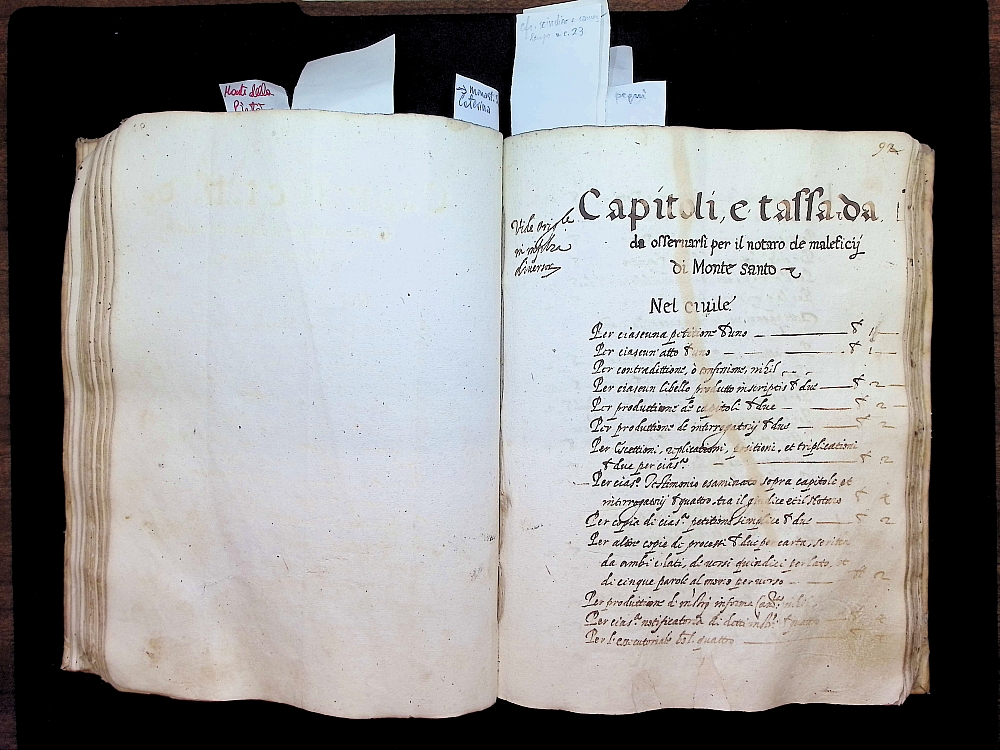 Monti della
Pietà
→ Monast. S.
Caterina
c. 23
92
Capitoli, e tassa da
da osseruarsi per il notaro de maleficij
di Monte santo
Vide
in
diuersor
Nel ciuile
Per ciascuna petitione ₰ uno — ₰ 1 —
Per ciascun' atto ₰ uno — ₰ 1 —
Per contradittione, ò confessione, nihil
Per ciascun libello produtto inscriptis ₰ due — ₰ 2 —
Per productione de capitoli ₰ due — ₰ 2 —
Per productione de interrogatorij ₰ due — ₰ 2
Per Eccettioni, replicationi, positioni, et triplicationi
₰ due per cias.ᵃ — ₰ 2
Per cias.º Testimonio esaminato sopra capitoli et
interrogatorij ₰ quattro, tra il giudice et il Notaro ₰ 4
Per copia di cias.ᵃ petitione simplice ₰ due — ₰ 2
Per altre copie di processi ₰ due per carta, scritta
da ambi i lati, de uersi quindici per lato, et
di cinque parole al meno per uerso — ₰ 2
Per produttione di in forma nihil
Per cias.ᵃ notificatoria di detti ₰ quatro
Per l'executoriale bol. quattro